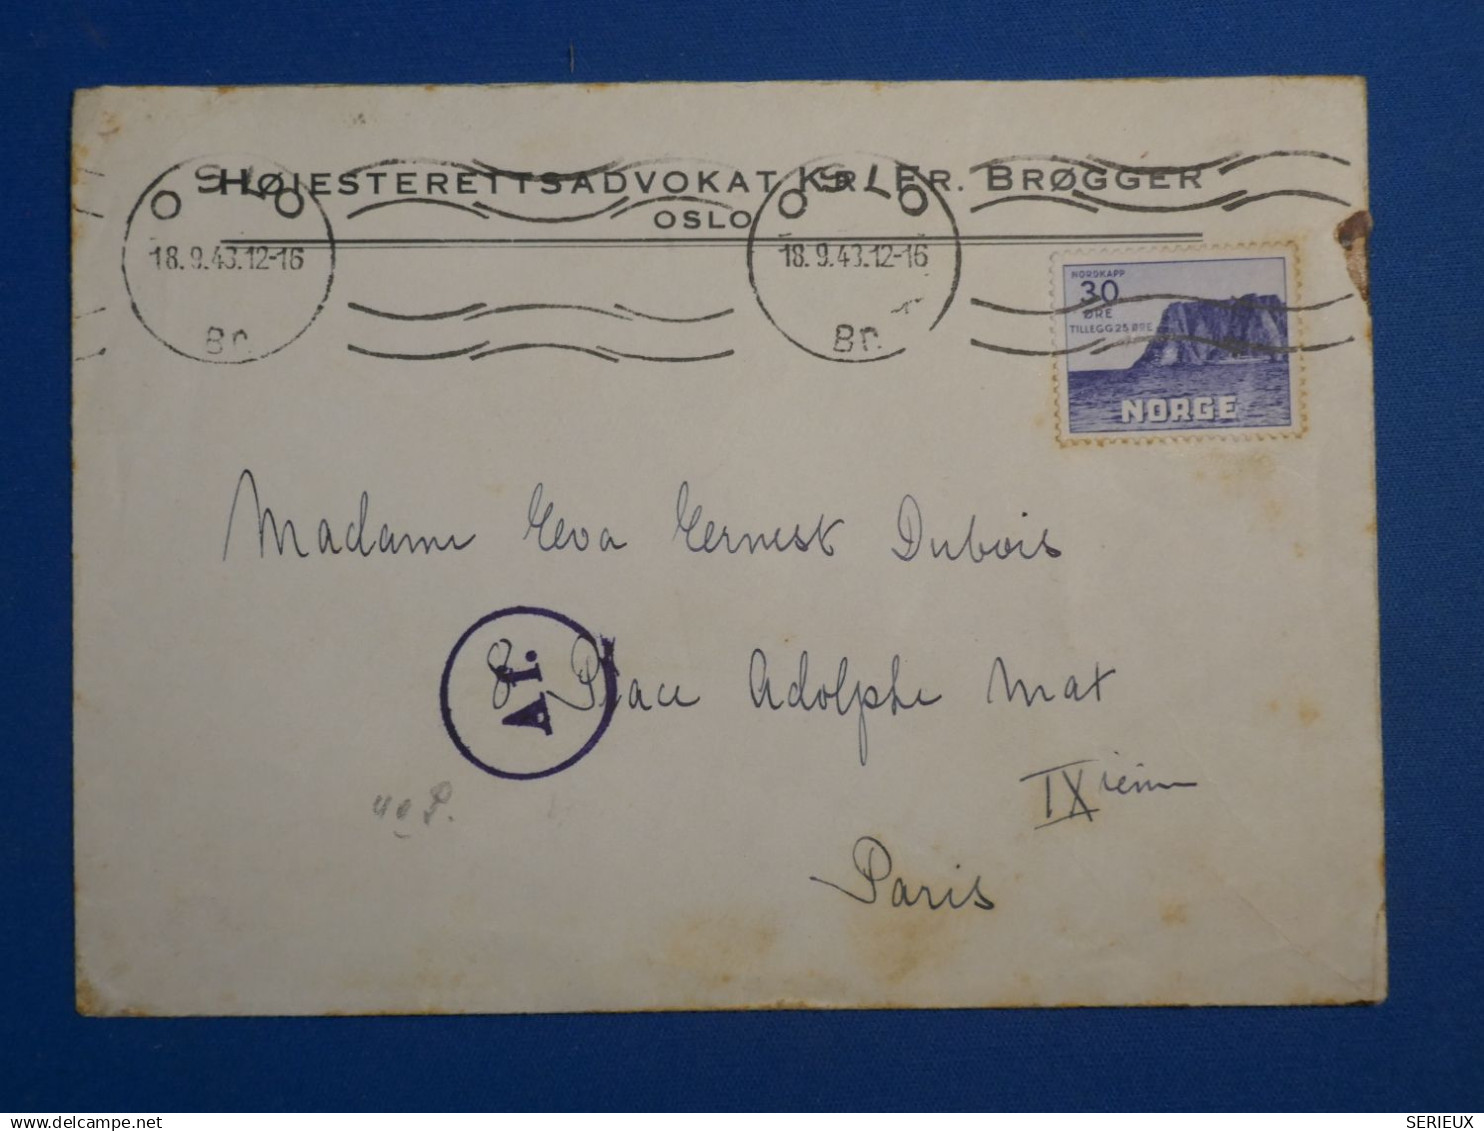 HØIESTERETTSADVOKAT KR. FR. BRØGGER
OSLO
OSLO
18.9.43.12-16
Br.
OSLO
18.9.43.12-16
Br.
NORDKAPP
30
ØRE
TILLEGG 25 ØRE
NORGE
Madame Eva Ernest Dubois
8 Place Adolphe Max
Af.
IXième
Paris
SERIEUX